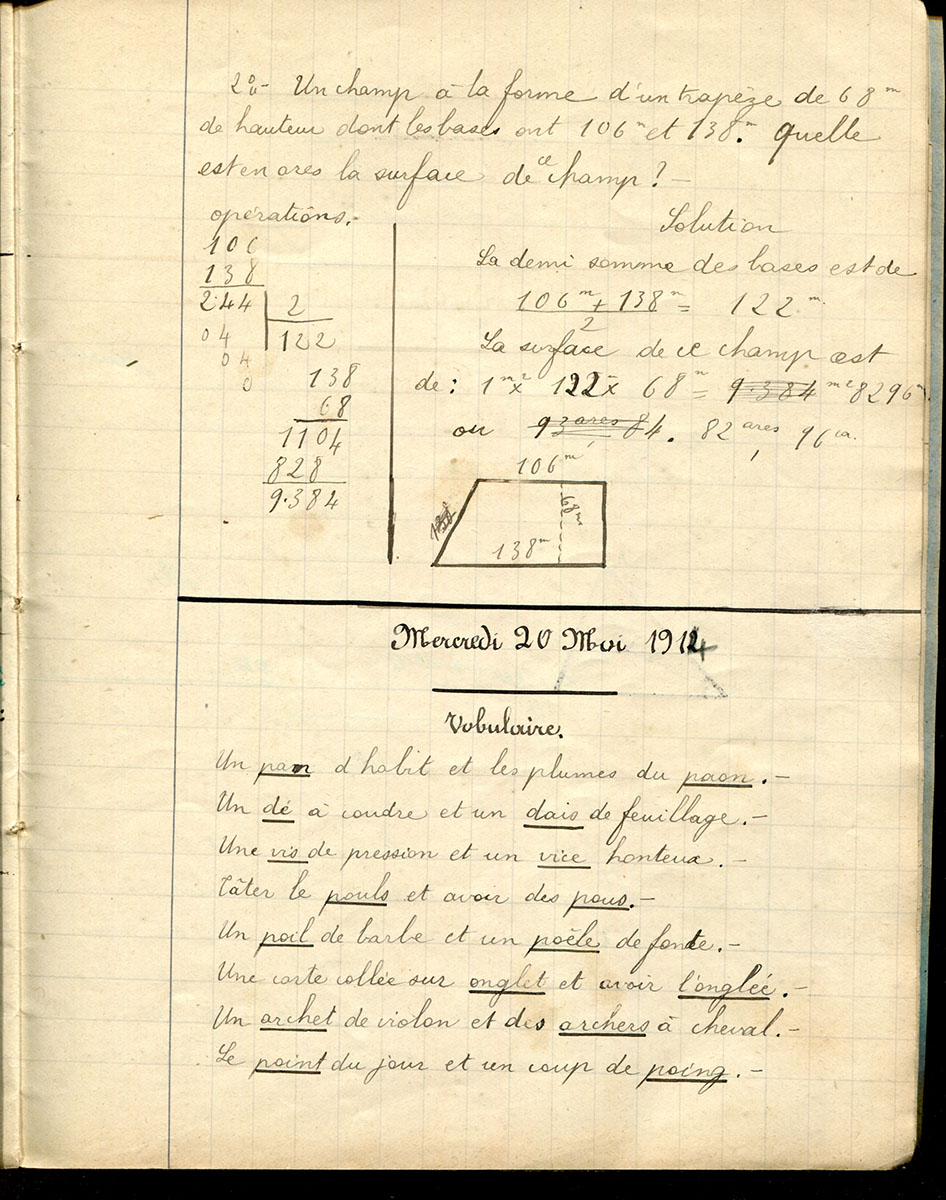 2º.- Un champ a la forme d'un trapèze de 68 m
de hauteur dont les bases ont 106 m et 138. m quelle
est en ares la surface de ce champ ? -
opérations.-
106
138
244 | 2
04 122
04
0
138
68
1104
828
9.384
Solution
La demi somme des bases est de
106 m + 138 m = 122 m.
2
La surface de ce champ est
de : 1 m2 x 122 x 68 m = 9.384 m2 8296
ou 93 ares 84. 82 ares, 96 ca.
106 m
68 m
138 m
Mercredi 20 Mai 1914
Vobulaire.
Un pan d'habit et les plumes du paon. -
Un dé à coudre et un dais de feuillage. -
Une vis de pression et un vice honteux. -
Tâter le pouls et avoir des pous. -
Un poil de barbe et un poêle de fonte. -
Une carte collée sur onglet et avoir l'onglée. -
Un archet de violon et des archers à cheval. -
Le point du jour et un coup de poing. -